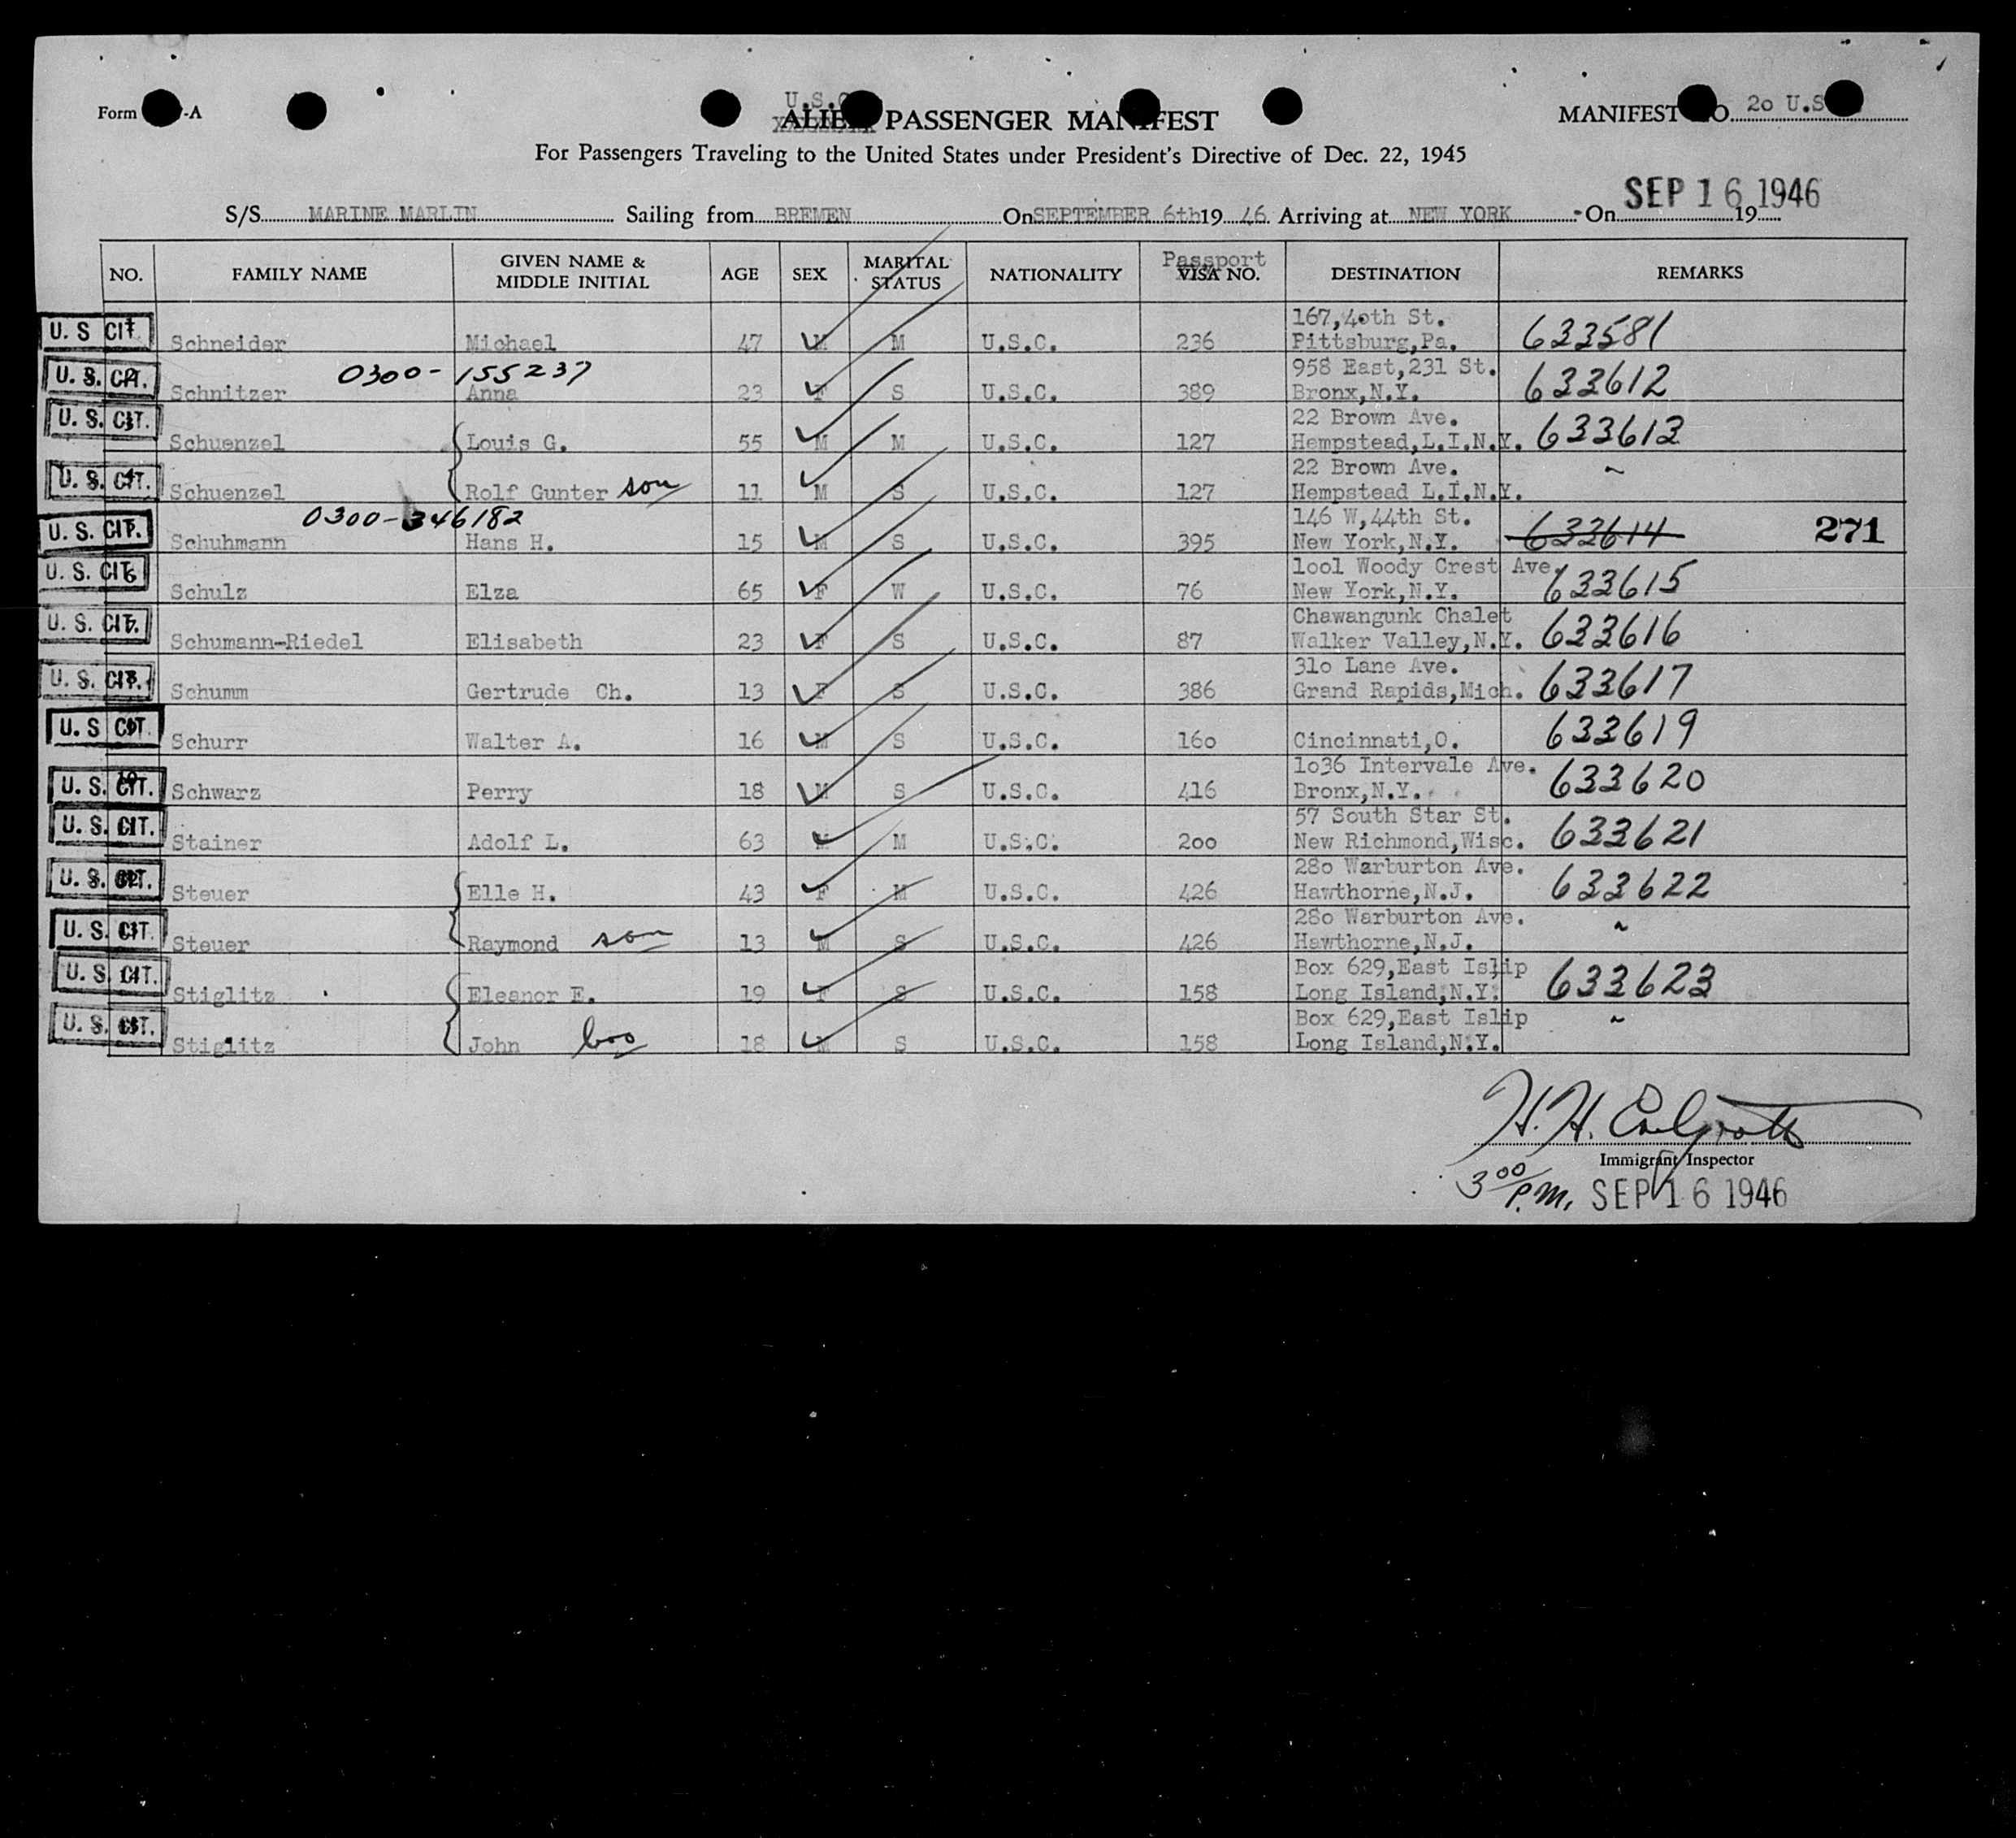 U.S.C.
Form -A
ALIEN PASSENGER MANIFEST
MANIFEST NO. 20 U.S
For Passengers Traveling to the United States under President's Directive of Dec. 22, 1945
S/S MARINE MARLIN Sailing from BREMEN On SEPTEMBER 6th 19 46 Arriving at NEW YORK On SEP 16 1946 19
NO. FAMILY NAME GIVEN NAME & MIDDLE INITIAL AGE SEX MARITAL STATUS NATIONALITY Passport VISA NO. DESTINATION REMARKS
167,40th St.
U. S CIT. 1 Schneider Michael 47 M M U.S.C. 236 Pittsburg,Pa. 633581
0300-155237 958 East,231 St.
U. S. CIT. 2 Schnitzer Anna 23 F S U.S.C. 389 Bronx,N.Y. 633612
22 Brown Ave.
U. S. CIT. 3 Schuenzel Louis G. 55 M M U.S.C. 127 Hempstead,L.I.N.Y. 633613
22 Brown Ave. ~
U. S. CIT. 4 Schuenzel Rolf Gunter son 11 M S U.S.C. 127 Hempstead L.I.N.Y.
0300-346182 146 W,44th St.
U. S. CIT. 5 Schuhmann Hans H. 15 M S U.S.C. 395 New York,N.Y. 633614 271
1001 Woody Crest Ave.
U. S. CIT. 6 Schulz Elza 65 F W U.S.C. 76 New York,N.Y. 633615
Chawangunk Chalet
U. S. CIT. 7 Schumann-Riedel Elisabeth 23 F S U.S.C. 87 Walker Valley,N.Y. 633616
310 Lane Ave.
U. S. CIT. 8 Schumm Gertrude Ch. 13 F S U.S.C. 386 Grand Rapids,Mich. 633617
U. S CIT. 9 Schurr Walter A. 16 M S U.S.C. 160 Cincinnati,O. 633619
1036 Intervale Ave.
U. S. CIT. 10 Schwarz Perry 18 M S U.S.C. 416 Bronx,N.Y. 633620
57 South Star St.
U. S. CIT. 11 Stainer Adolf L. 63 M M U.S.C. 200 New Richmond,Wisc. 633621
280 Warburton Ave.
U. S. CIT. 12 Steuer Elle H. 43 F M U.S.C. 426 Hawthorne,N.J. 633622
280 Warburton Ave. ~
U. S. CIT. 13 Steuer Raymond son 13 M S U.S.C. 426 Hawthorne,N.J.
Box 629,East Islip
U. S. CIT. 14 Stiglitz Eleanor E. 19 F S U.S.C. 158 Long Island,N.Y. 633623
Box 629,East Islip ~
U. S. CIT. 15 Stiglitz John bro 18 M S U.S.C. 158 Long Island,N.Y.
H. H.
Immigrant Inspector
3 00 P.M. SEP 16 1946